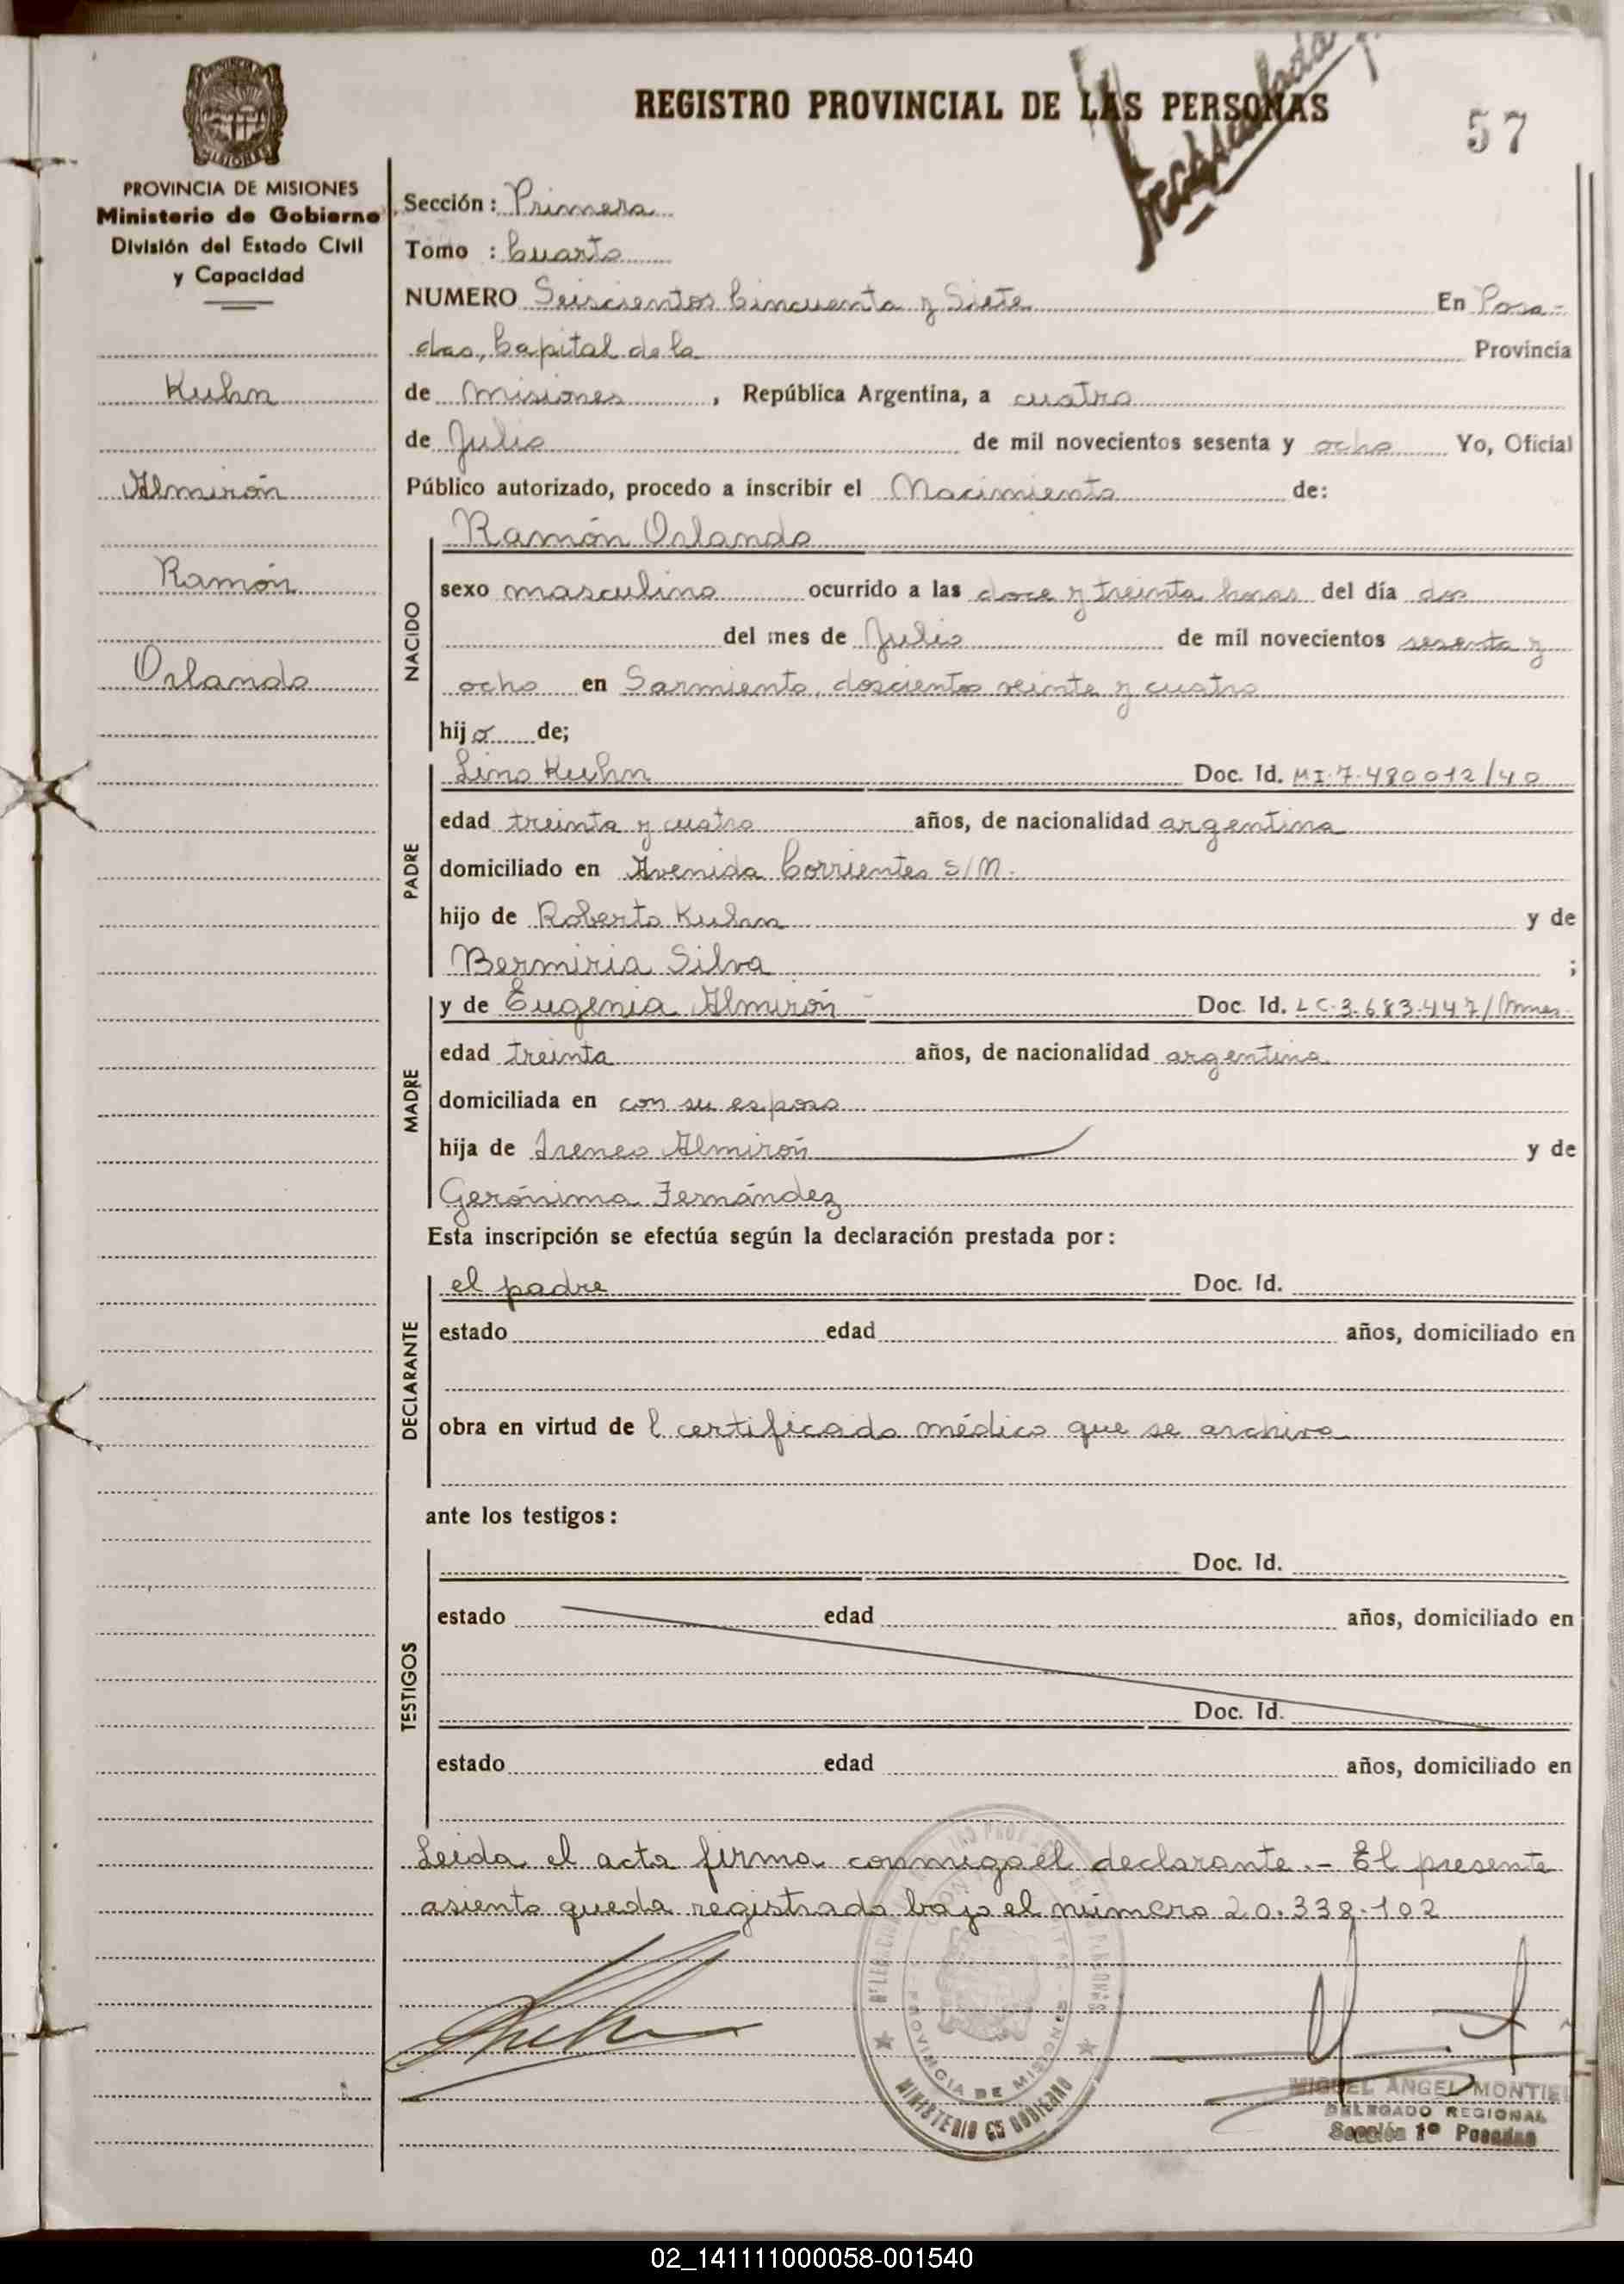 REGISTRO PROVINCIAL DE LAS PERSONAS
57
PROVINCIA DE MISIONES
Ministerio de Gobierno
División del Estado Civil
y Capacidad
Kuhn
Almirón
Ramón
Orlando
Sección: Primera
Tomo : Cuarto
NUMERO Seiscientos Cincuenta y Siete En Posa-
das, Capital de la Provincia
de Misiones, República Argentina, a cuatro
de Julio de mil novecientos sesenta y ocho Yo, Oficial
Público autorizado, procedo a inscribir el Nacimiento de:
NACIDO
Ramón Orlando
sexo masculino ocurrido a las doce y treinta horas del día dos
del mes de Julio de mil novecientos sesenta y
ocho en Sarmiento, doscientos veinte y cuatro
hijo de;
PADRE
Lino Kuhn Doc. Id. MI.7.480012/40
edad treinta y cuatro años, de nacionalidad argentina
domiciliado en Avenida Corrientes S/N.
hijo de Roberto Kuhn y de
Bermiria Silva ;
MADRE
y de Eugenia Almirón Doc. Id. LC.3.683.447/Mnes.
edad treinta años, de nacionalidad argentina
domiciliada en con su esposo
hija de Ireneo Almirón y de
Gerónima Fernández
Esta inscripción se efectúa según la declaración prestada por:
DECLARANTE
el padre Doc. Id.
estado edad años, domiciliado en
obra en virtud de l certificado médico que se archiva
ante los testigos:
TESTIGOS
Doc. Id.
estado edad años, domiciliado en
Doc. Id.
estado edad años, domiciliado en
Leida el acta firma conmigo el declarante.- El presente
asiento queda registrado bajo el número 20.338.102
PROVINCIA DE MISIONES
MINISTERIO DE GOBIERNO
MIGUEL ANGEL MONTIEL
DELEGADO REGIONAL
Sección 1º Posadas
02_141111000058-001540